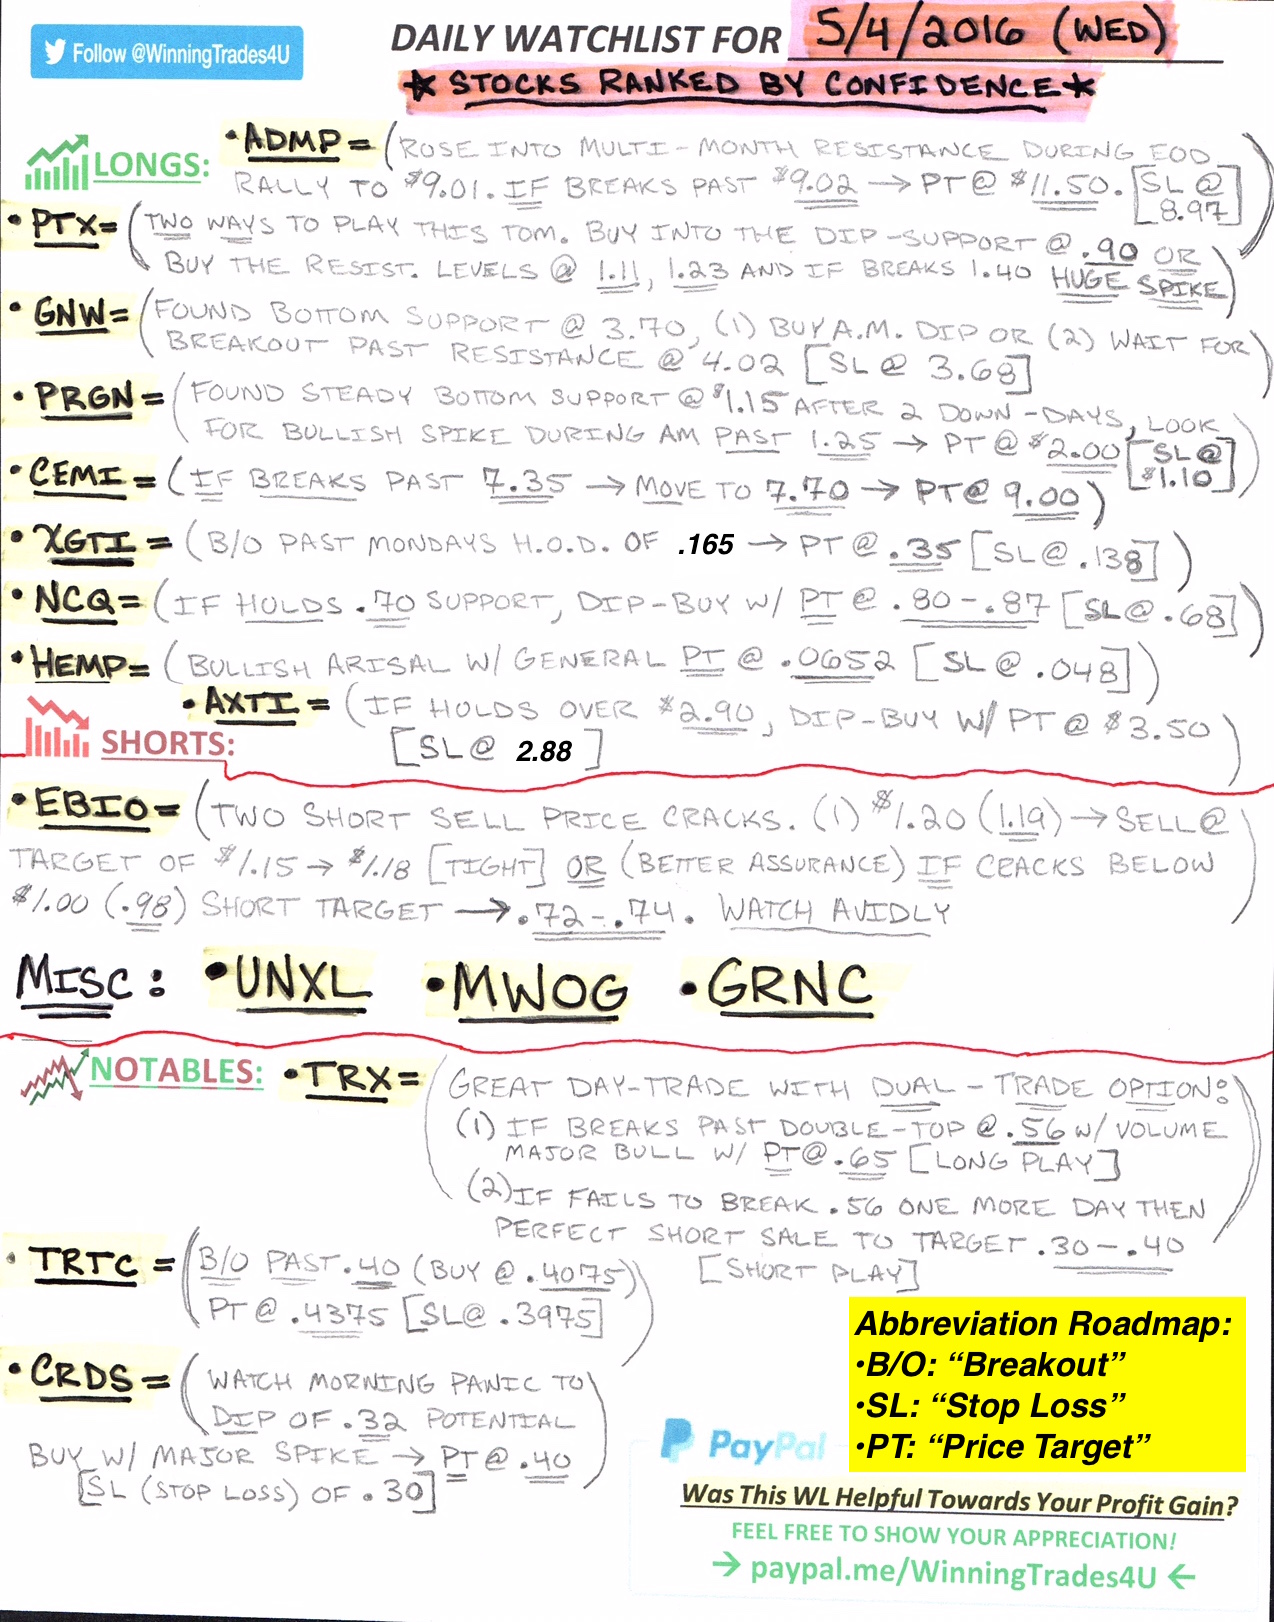 Follow @WinningTrades4U
DAILY WATCHLIST FOR 5/4/2016 (WED)
*STOCKS RANKED BY CONFIDENCE*
LONGS:
•ADMP= (ROSE INTO MULTI-MONTH RESISTANCE DURING EOD
RALLY TO $9.01. IF BREAKS PAST $9.02 → PT@ $11.50. [SL @
8.97]
•PTX= (TWO WAYS TO PLAY THIS TOM. BUY INTO THE DIP-SUPPORT @ .90 OR
BUY THE RESIST. LEVELS @ 1.11, 1.23 AND IF BREAKS 1.40 HUGE SPIKE)
•GNW= (FOUND BOTTOM SUPPORT @ 3.70, (1) BUY A.M. DIP OR (2) WAIT FOR
BREAKOUT PAST RESISTANCE @ 4.02 [SL@ 3.68])
•PRGN= (FOUND STEADY BOTTOM SUPPORT @ $1.15 AFTER 2 DOWN-DAYS, LOOK
FOR BULLISH SPIKE DURING AM PAST 1.25 → PT@ $2.00 [SL@
$1.10])
•CEMI= (IF BREAKS PAST 7.35 → MOVE TO 7.70 → PT@ 9.00)
•XGTI= (B/O PAST MONDAYS H.O.D. OF .165 → PT@ .35 [SL@ .138])
•NCQ= (IF HOLDS .70 SUPPORT, DIP-BUY W/ PT @ .80-.87 [SL@ .68])
•HEMP= (BULLISH ARISAL W/ GENERAL PT @ .0652 [SL@ .048])
•AXTI= (IF HOLDS OVER $2.90, DIP-BUY W/ PT@ $3.50)
[SL@ 2.88]
SHORTS:
•EBIO= (TWO SHORT SELL PRICE CRACKS. (1) $1.20 (1.19) → SELL@
TARGET OF $1.15 → $1.18 [TIGHT] OR (BETTER ASSURANCE) IF CRACKS BELOW
$1.00 (.98) SHORT TARGET → .72-.74. WATCH AVIDLY
MISC: •UNXL •MWOG •GRNC
NOTABLES:
•TRX= (GREAT DAY-TRADE WITH DUAL-TRADE OPTION:
(1) IF BREAKS PAST DOUBLE-TOP @ .56 W/ VOLUME
MAJOR BULL W/ PT@ .65 [LONG PLAY]
(2) IF FAILS TO BREAK .56 ONE MORE DAY THEN
PERFECT SHORT SALE TO TARGET .30-.40
[SHORT PLAY])
•TRTC= (B/O PAST .40 (BUY @ .4075)
PT@ .4375 [SL@ .3975])
•CRDS= (WATCH MORNING PANIC TO
DIP OF .32 POTENTIAL
BUY W/ MAJOR SPIKE → PT@ .40
[SL (STOP LOSS) OF .30])
Abbreviation Roadmap:
•B/O: “Breakout”
•SL: “Stop Loss”
•PT: “Price Target”
PayPal
Was This WL Helpful Towards Your Profit Gain?
FEEL FREE TO SHOW YOUR APPRECIATION!
→ paypal.me/WinningTrades4U ←